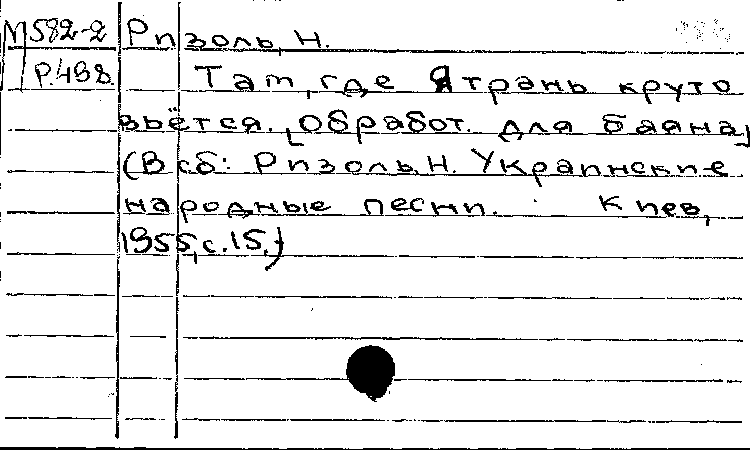 М582-2 Ризоль, Н.
Р.498 Там, где Ятрань круто
вьётся. [Обработ. для баяна]
(В сб: Ризоль, Н. Украинские
народные песни. Киев,
1955, с. 15.)